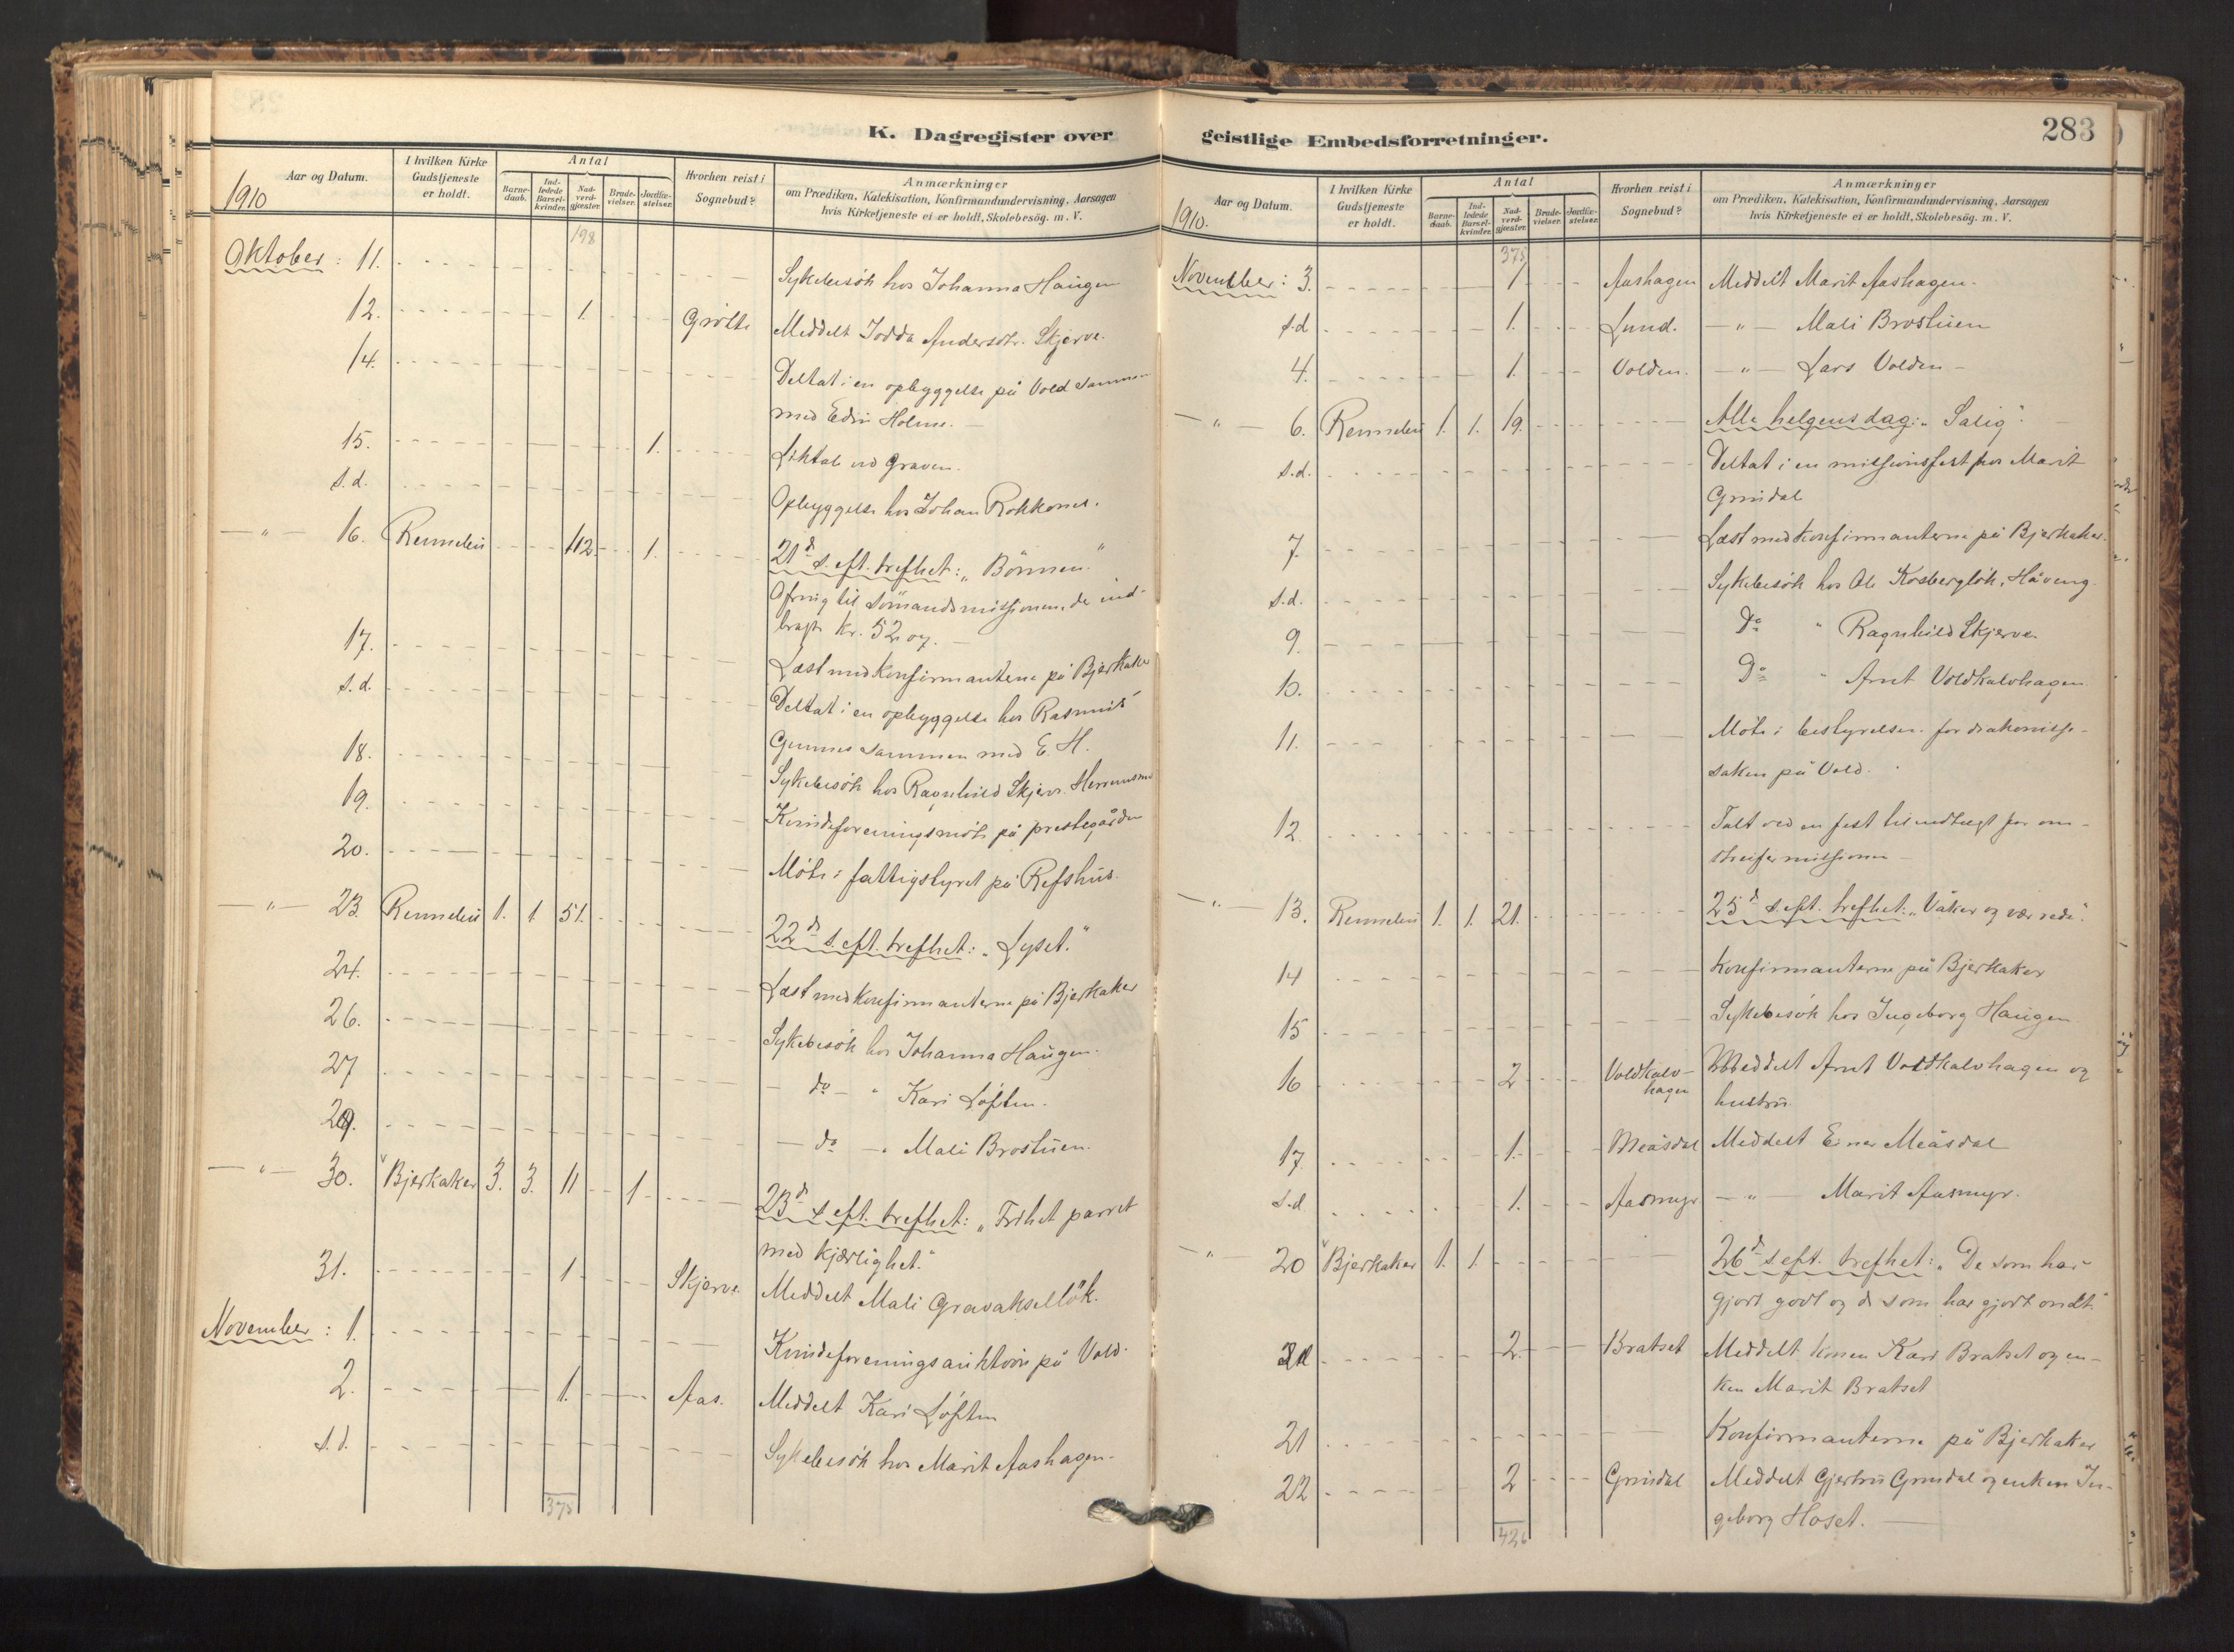 K. Dagregister over
Aar og Datum.
I hvilken Kirke Gudstjeneste er holdt.
Antal
Barne-daab.
Ind-ledede Barsel-kvinder.
Nad-verd-gjæster.
Brude-vielser.
Jordfæ-stelser.
Hvorhen reist i Sognebud?
Anmærkninger
om Prædiken, Katekisation, Konfirmandundervisning, Aarsagen
hvis Kirketjeneste ei er holdt, Skolebesøg. m. V.
1910
198
Oktober: 11. Sykebesök hos Johanna Haugen
12. 1. Grötte Meddelt Jodda Andersdtr. Skjerve.
14. Deltat i en opbyggelse på Vold sammen
med Edin Holme.
15. 1. Liktale ved graven.
s.d. Opbyggelse hos Johan Rokkones.
— " — 16. Rennebu 112. 1. 21d s. eft. trefhet: „Bönnen."
Ofring til Sömandsmissionen, de ind-
bragte kr. 52 og.
17. Læst med konfirmanterne på Bjerkaker
s.d. Deltat i en opbyggelse hos Rasmus
Gunnes sammen med E. H.
18. Sykebesök hos Ragnhild Skjerv.
19. Kvindeforeningsmöte på prestegården
20. Möte i fattigstyret på Refshus.
— " — 23. Rennebu 1. 1 51. 22d s. eft. trefhet: „Lyset."
24. Læst med konfirmanterne på Bjerkaker
26. Sykebesök hos Johanna Haugen.
27 — do — " Kari Löften.
29. — do — " Mali Brostuen.
— " — 30. Bjerkaker 3. 3. 11 1 23d s. eft. trefhet: „Frihet parret
med kjærlighet."
31. 1. Skjerve Meddelt Mali Gravaksellök.
November: 1. Kvindeforeningsauktion på Vold.
2. 1. Aas. Meddelt Kari Löften
s.d. Sykebesök hos Marit Aashagen.
375
geistlige Embedsforretninger.
283
Aar og Datum.
I hvilken Kirke Gudstjeneste er holdt.
Antal
Barne-daab.
Ind-ledede Barsel-kvinder.
Nad-verd-gjæster.
Brude-vielser.
Jordfæ-stelser.
Hvorhen reist i Sognebud?
Anmærkninger
om Prædiken, Katekisation, Konfirmandundervisning, Aarsagen
hvis Kirketjeneste ei er holdt, Skolebesøg. m. V.
1910.
375
November: 3. 1. Aashagen Meddelt Marit Aashagen.
s.d 1. Lund. — " — Mali Brostuen
4. 1. Volden. — " — Lars Volden —
— " — 6. Rennebu 1. 1. 19. Alle helgens dag: „Salig".
s.d. Deltat i en missionsfest hos Marit
Grindal
7. Læst med konfirmanterne på Bjerkaker.
s.d. Sykebesök hos Ole Kosberglök, Håveng.
9. Do " Ragnhild Skjerve.
10. Do " Arnt Voldkalvhagen
11. Möte i bestyrelsen for diakonisse-
saken på Vold.
12. Talt ved en fest til indtægt for om-
streifermissionen —
— " — 13. Rennebu 1. 1. 21. 25d s. eft. trefhet: „Våker og vær rede".
14 Konfirmanterne på Bjerkaker
15 Sykebesök hos Ingeborg Haugen
16 2 Voldkalv-hagen Meddelt Arnt Voldkalvhagen og
hustru.
17. 1. Meåsdal Meddelt Einar Meåsdal
s.d 1. Aasmyr — " — Marit Aasmyr.
— " 20 Bjerkaker 1. 1. 26d s. eft. trefhet: „De som har
gjort godt og de som har gjort ondt."
2. Bratset Meddelt konen Kari Bratset og en-
ken Marit Bratset
21 Konfirmanterne på Bjerkaker
22 2 Grindal Meddelt Gjertru Grindal og enken In-
geborg Haset.
426